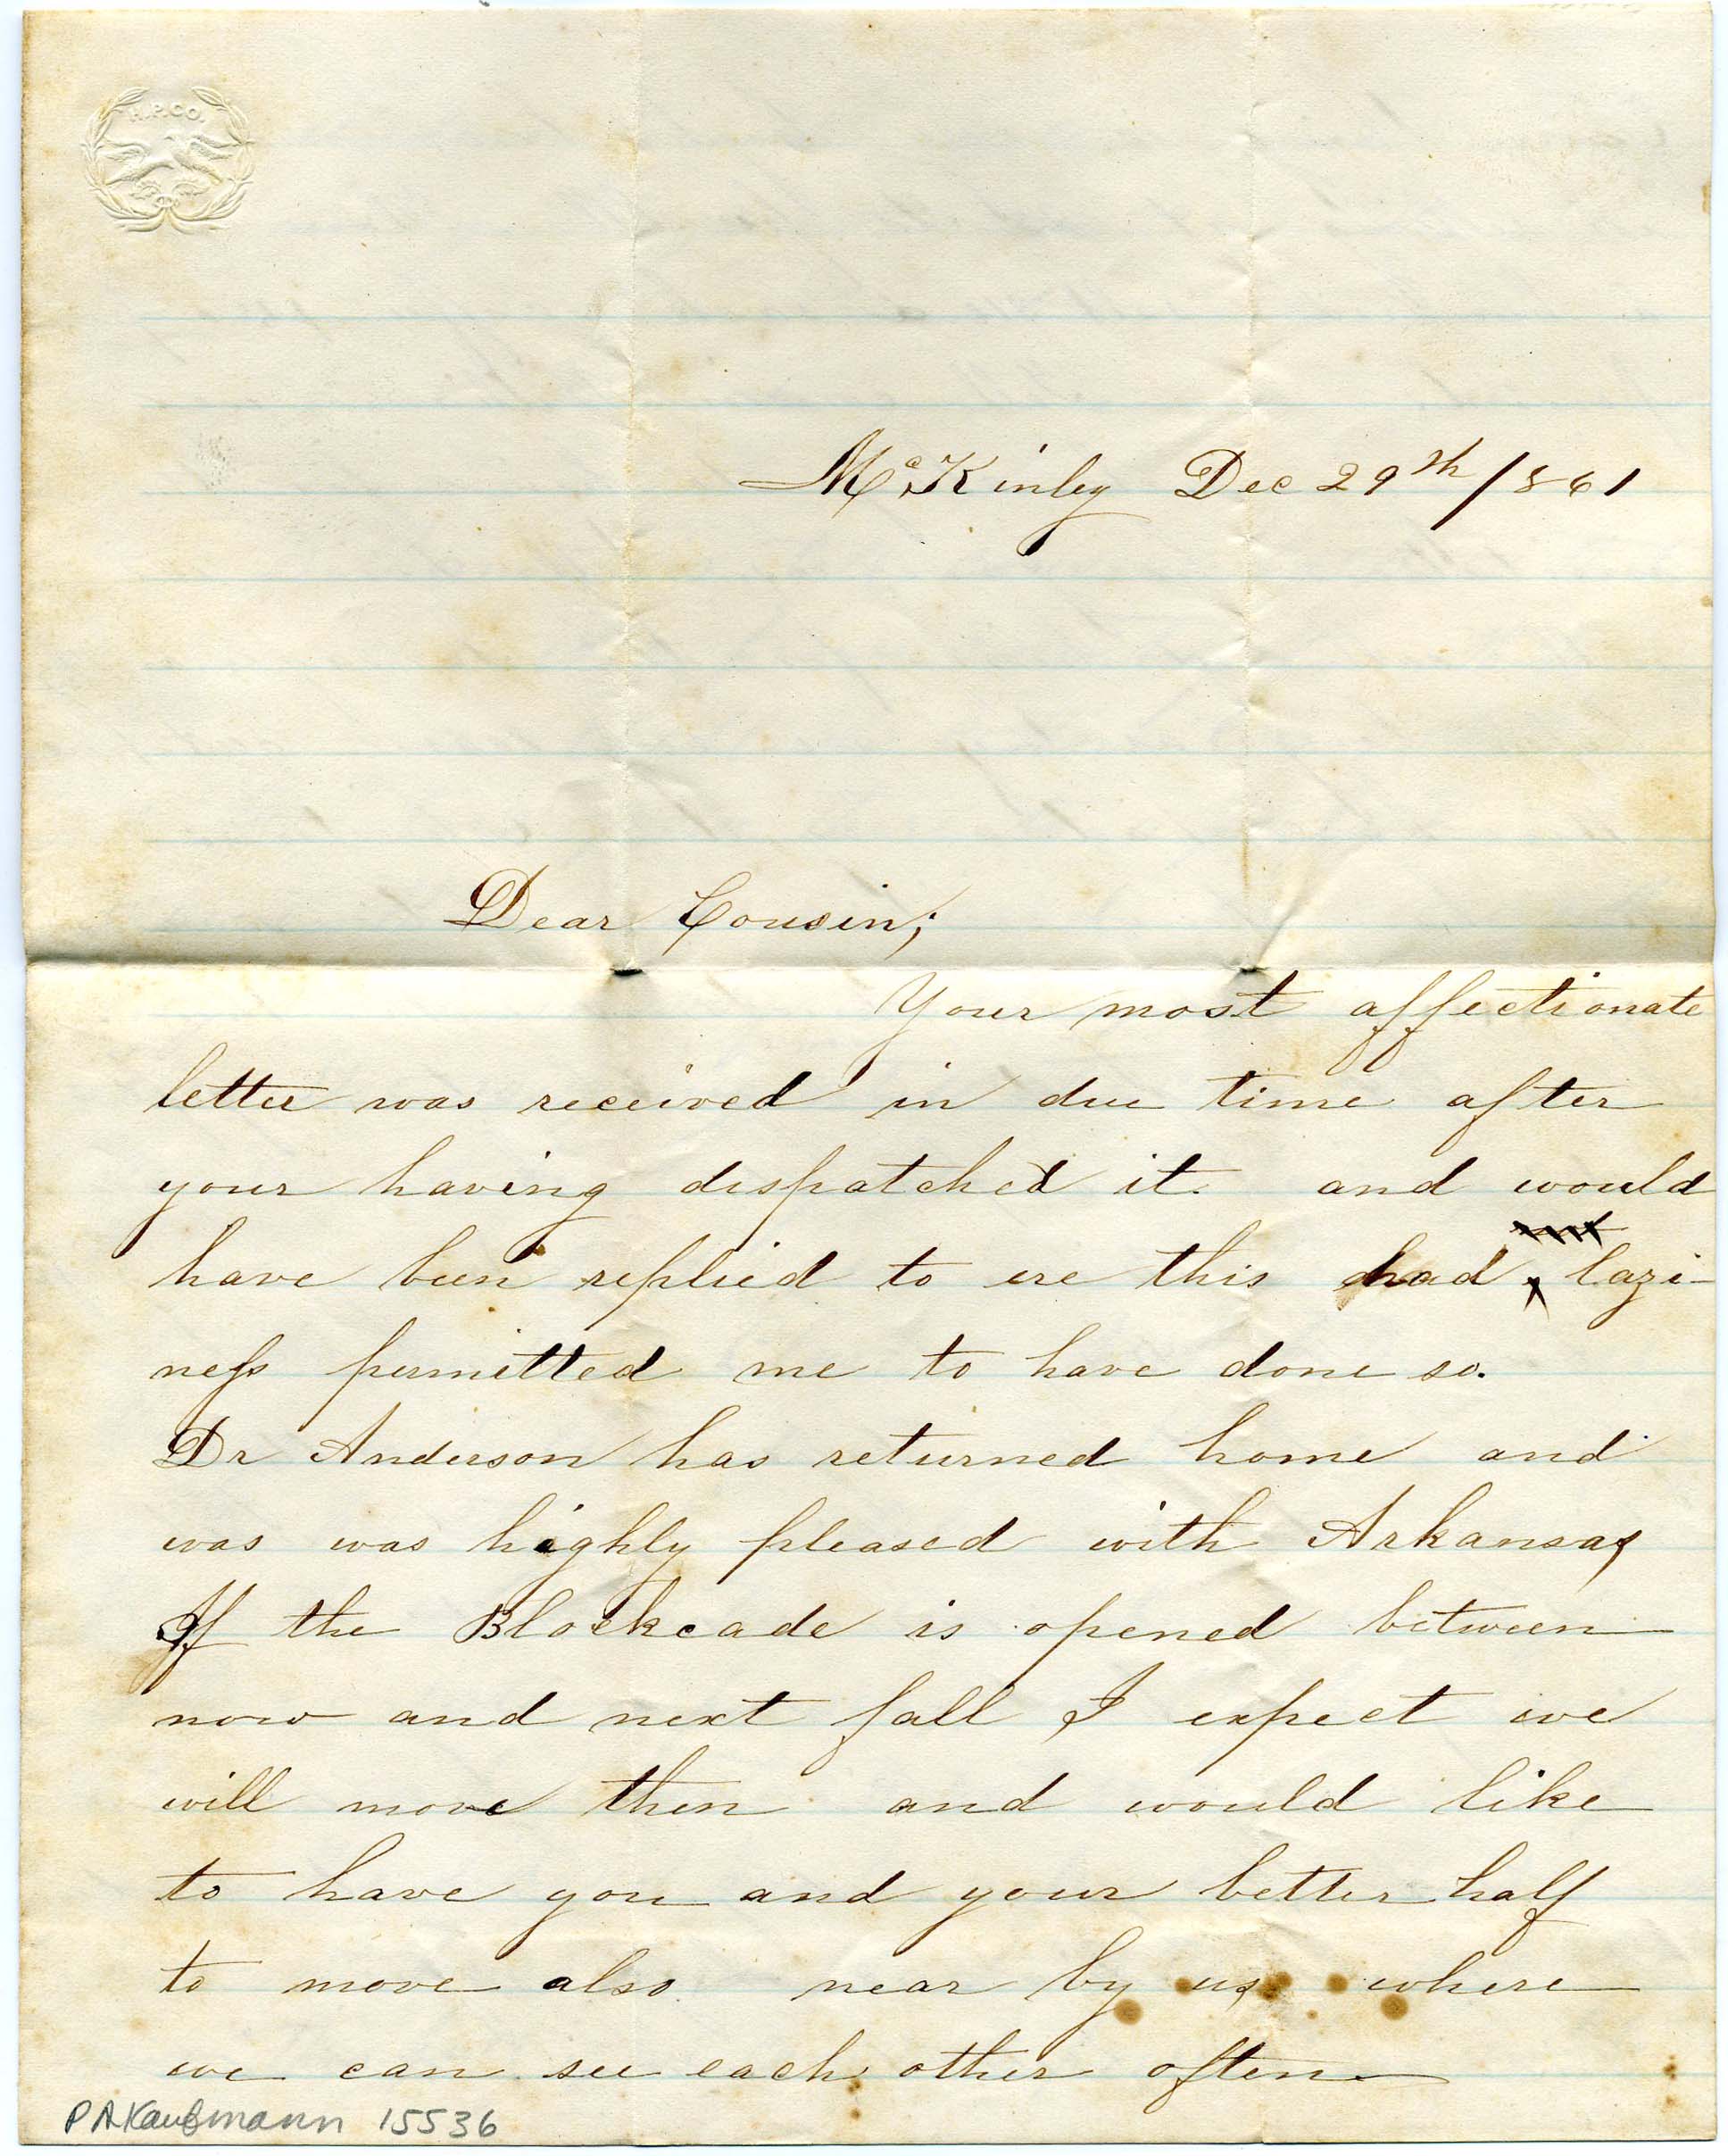 H.P.CO.
McKinley Dec 29th /861
Dear Cousin;
Your most affectionate
letter was received in due time after
your having dispatched it. and would
have been replied to ere this had lazi-
ness permitted me to have done so.
Dr Anderson has returned home and
was was highly pleased with Arkansas,
If the Blockcade is opened between
now and next fall I expect we
will move then and would like
to have you and your better half
to move also. near by us, where
we can see each other often
PAKaufmann 15536